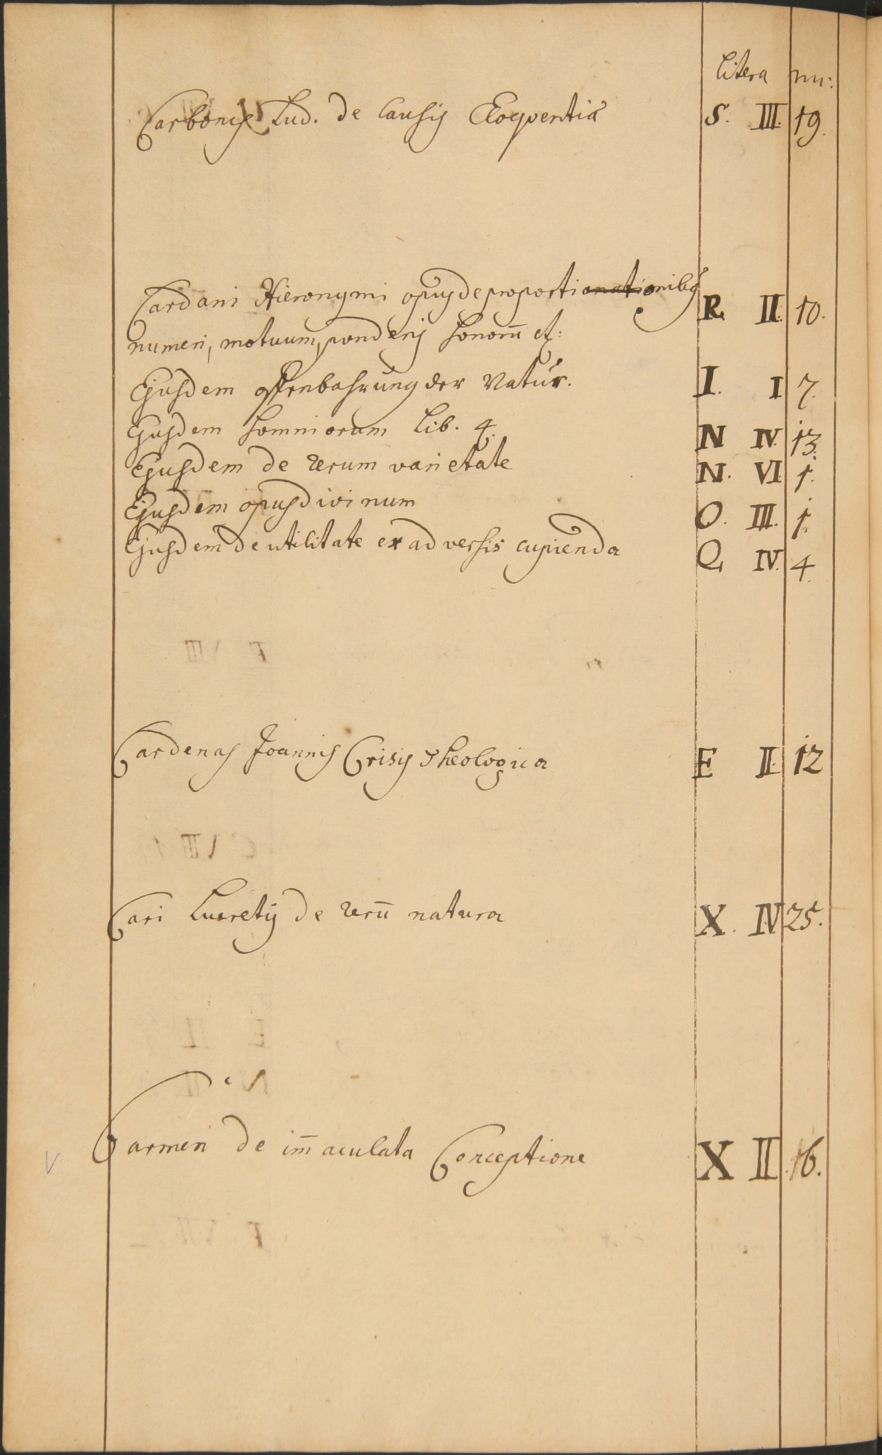 litera nu:
Carbonis Lud. de Causis Eloqventiæ S. III. 19.
Cardani Hieronymi opus de proportionationibus
numeri, motuum, ponderis sonorū et: R II. 10.
Ejusdem offenbahrung der Natur. I. I 7.
Ejusdem somniorum Lib. 4. N IV. 13.
Ejusdem de rerum varietate N. VI 1.
Ejusdem opus divinum O. III. 1.
Ejusdem de utilitate ex adversis capienda Q IV. 4.
Cardenas Joannis Crisis Theologica E II. 12
Cari Lucretij de rerū natura X. IV 25.
Carmen de im̄aculata Conceptione X II. 16.